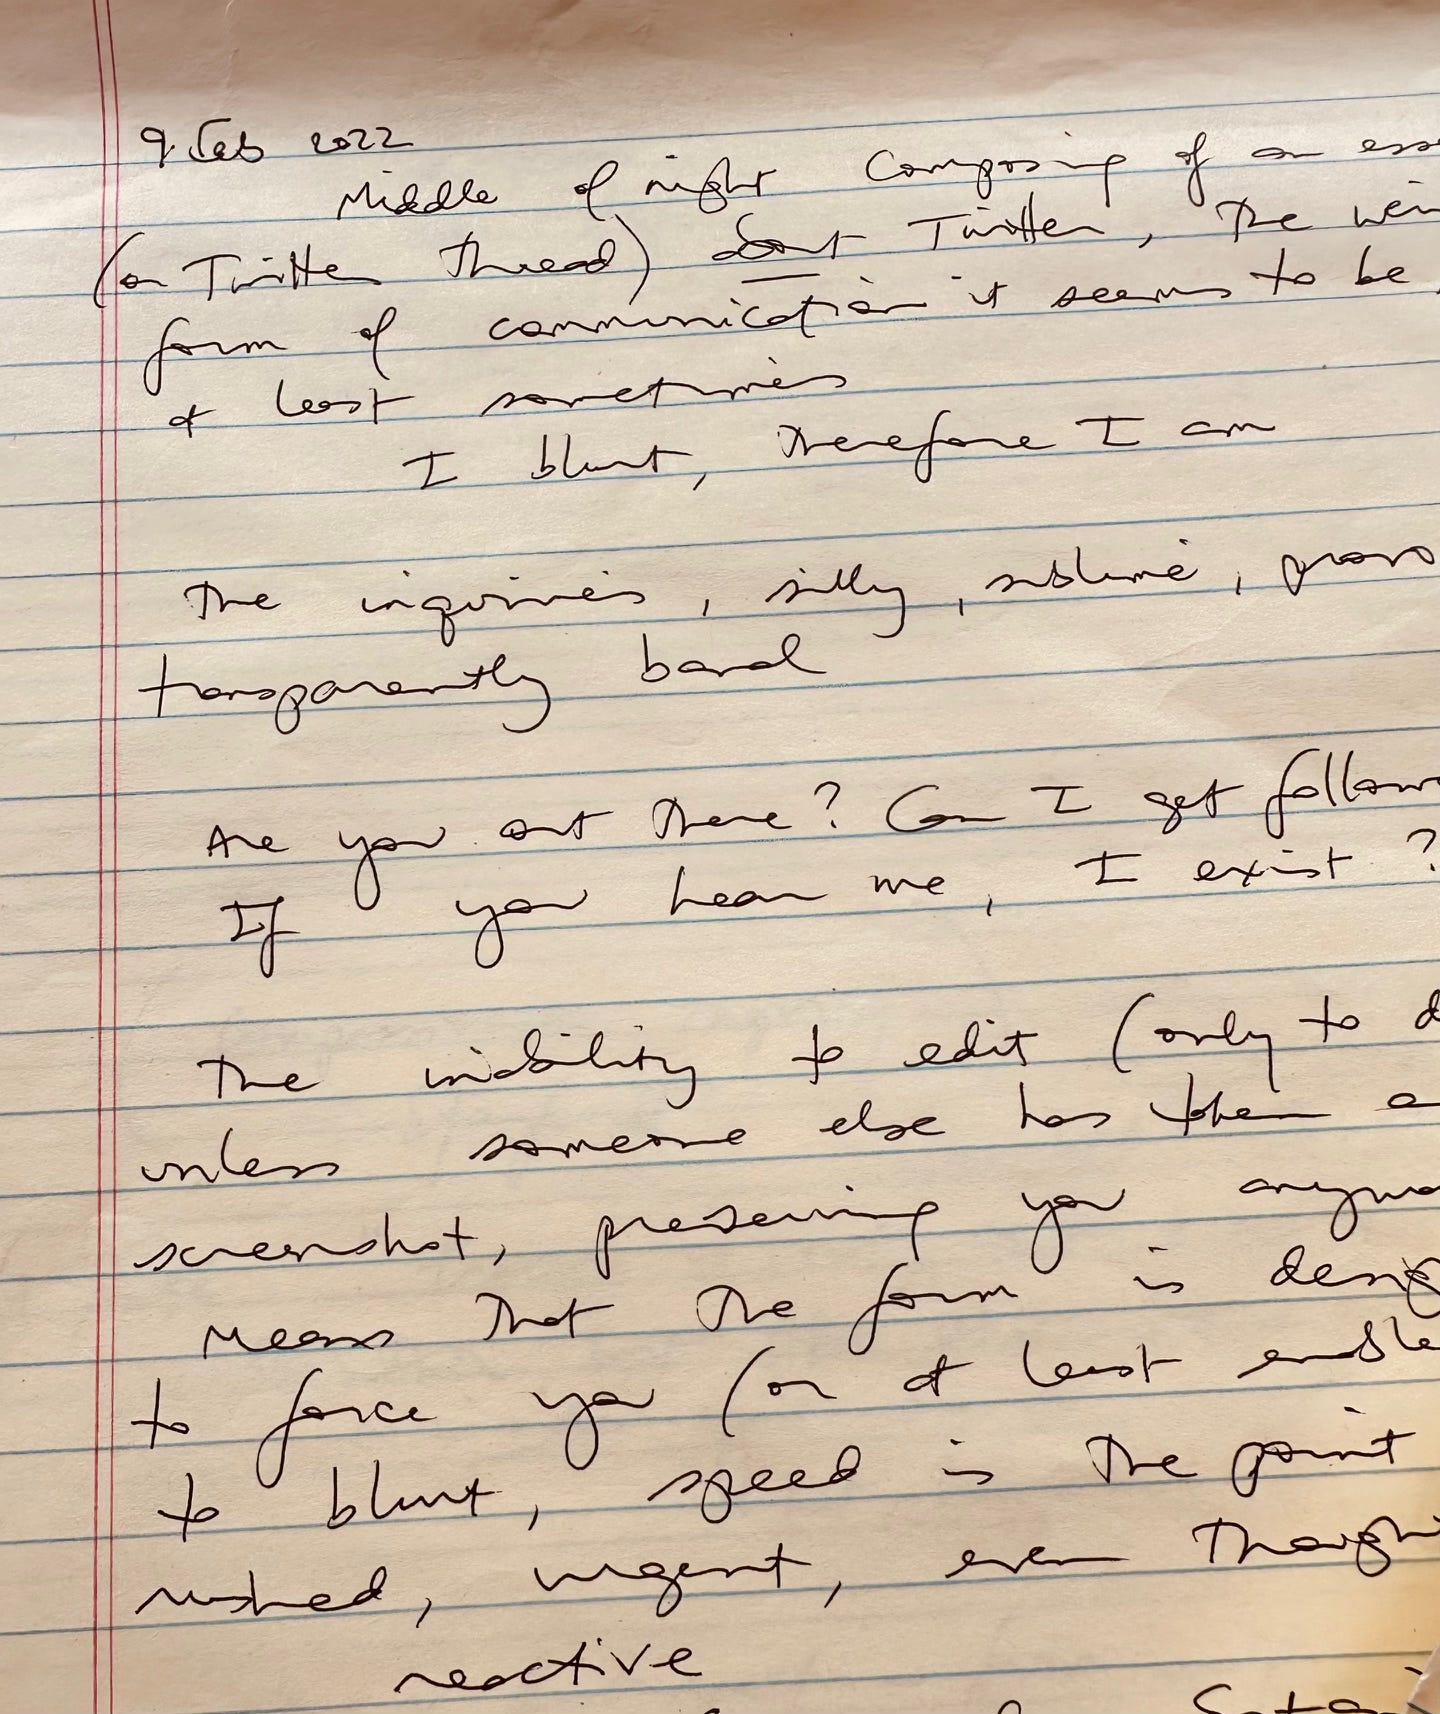 9 Feb 2022
Middle of night composing of an ess
(or Twitter thread) about Twitter, the wei
form of communication it seems to be,
at least sometimes
I blurt, therefore I am
The inquiries, silly, sublime, provo
transparently banal
Are you out there? Can I get follow
If you hear me, I exist?
The inability to edit (only to d
unless someone else has taken a
screenshot, preserving you anyway
Means that the form is desig
to force you (or at least enable
to blurt, speed is the point
rushed, urgent, even though
reactive